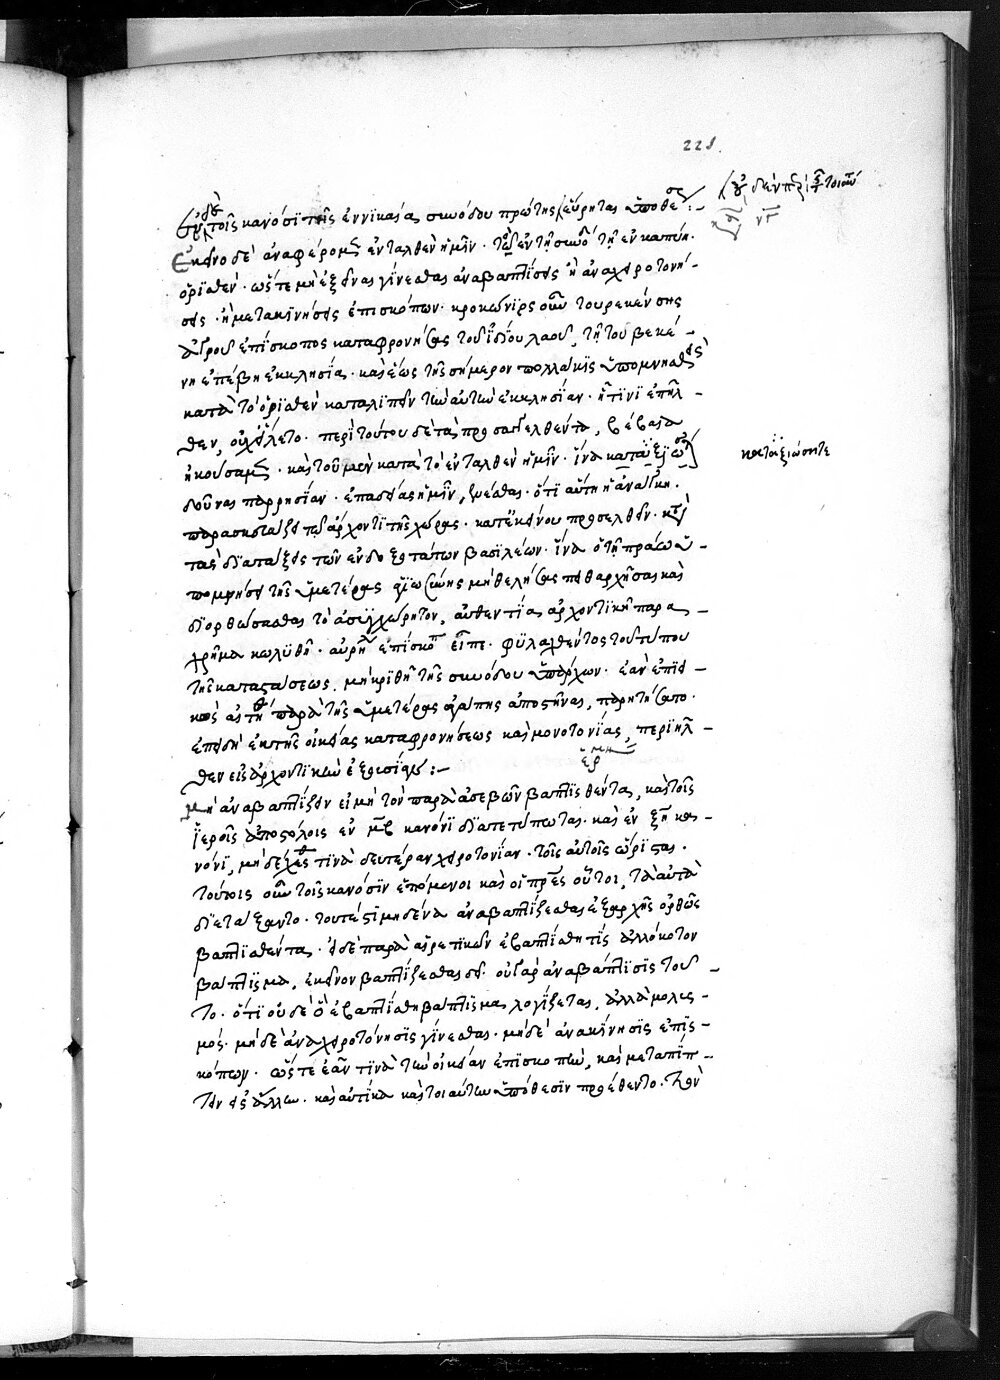 221
οὐδὲν περὶ τοιού
ἐν τοῖς κανόσι τῆς ἐν νικαία συνόδου πρώτης εὕρηται ὑποθες :-
Ἐκεῖνο δὲ ἀναφέρομεν ἐνταλθὲν ἡμῖν. τὸ ἐν τῇ συνόδ τῇ ἐν καπύη.
ὁρισθέν. ὥστε μὴ ἐξεῖναι γίνεσθαι ἀναβαπτίσεις ἢ ἀναχειροτονή-
σεις. ἢ μετακινήσεις ἐπισκόπων. κροκώνιος οὖν τουρεκένσης
ἐπίσκοπος καταφρονήσας τοῦ ἰδίου λαοῦ, τῇ τουβεκέ-
νη ἐπέβη ἐκκλησία. καὶ ἕως τῆς σήμερον πολλάκις ὑπομνησθεὶς
κατὰ τὸ ὁρισθὲν καταλιπεῖν τὴν αὐτὴν ἐκκλησίαν. ᾗτινι ἐπῆλ-
θεν, οὐχ εἵλετο. περὶ τούτου δὲ τὰ προσαγγελθέντα, βέβαια
ἠκούσαμεν. καὶ αἰτοῦμεν κατὰ τὸ ἐνταλθὲν ἡμῖν. ἵνα καταξιώσ
κατἀξιώσητε
δοῦναι παρρησίαν. ἐπειδὰν ἡμῖν, ὅτι αὕτη ἡ ἀνάγκη.
τῷ ἄρχοντι τῆς χώρας. κατ' ἐκείνου προσελθεῖν. κατὰ
τὰς διατάξεις τῶν ἐνδοξοτάτων βασιλέων. ἵνα ὁ τῇ πραεία ὑ-
πομνήσει τῆς ὑμετέρας ἁγιωσύνης μὴ θελήσας πειθαρχῆσαι καὶ
διορθώσασθαι τὸ ἀσυγχώρητον, αὐθεντίας ἀρχοντικῇ παρα-
χρῆμα κωλυθῇ. αὐρή ἐπίσκοπ εἶπε. φυλαχθέντος τοῦ τύπου
τῆς καταστάσεως. μὴ κριθῇ τῆς συνόδου ὑπάρχων. ἐὰν ἐπιει-
κῶς παρὰ τῆς ὑμετέρας ἀγάπης ἀποστῆναι, παρητήσατο.
ἐπειδὴ ἐκ τῆς οἰκείας καταφρονήσεως καὶ μονοτονίας, περιῆλ-
θεν εἰς ἀρχοντικὴν ἐξουσίαν :-
ἑρμη
μὴ ἀναβαπτίζειν εἰ μὴ τὸν παρὰ ἀσεβῶν βαπτισθέντα, καὶ τοῖς
ἱεροῖς ἀποστόλοις ἐν μζ κανόνι διατετύπωται. καὶ ἐν ξη κα-
νόνι, μὴ δέχεσθαι τινὰ δευτέραν χειροτονίαν. τοῖς αὐτοῖς ὥρισται.
τούτοις οὖν τοῖς κανόσιν ἑπόμενοι καὶ οἱ πρες οὗτοι, τὰ αὐτὰ
διετάξαντο. τουτέστι μηδένα ἀναβαπτίζεσθαι ἐξ ἀρχῆς ὀρθῶς
βαπτισθέντα. εἰ δὲ παρὰ αἱρετικῶν ἐβαπτίσθη τίς ἀλλόκοτον
βάπτισμα, ἐκεῖνον βαπτίζεσθαι δεῖ. οὐ γὰρ ἀναβάπτισις τοῦ-
το. ὅτι οὐδὲ ὃ ἐβαπτίσθη βάπτισμα λογίζεται, ἀλλὰ μολυσ-
μός. μὴ δὲ ἀναχειροτόνησις γίνεσθαι. μηδὲ ἀνακίνησις ἐπισ-
κόπων. ὥστε ἐᾶν τινὰ τὴν οἰκείαν ἐπισκοπὴν, καὶ μεταπίπ-
τειν εἰς ἄλλην. καὶ αὐτίκα καὶ τοιαύτην ὑπόθεσιν προέθεντο. τὸν